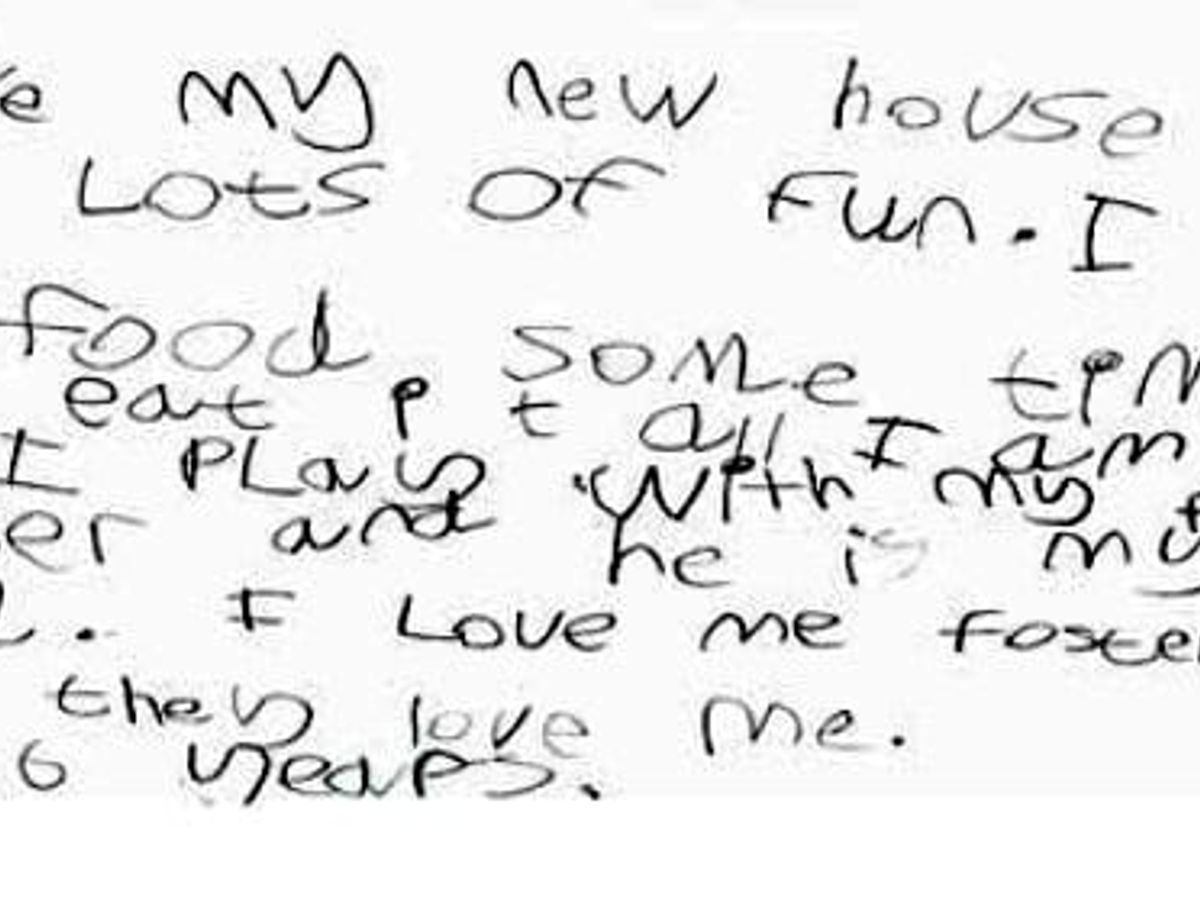 my new house
Lots of Fun. I
food. some
eat it all I am
I play with my
and he is my
. I Love me foster
they love me.
6 years.